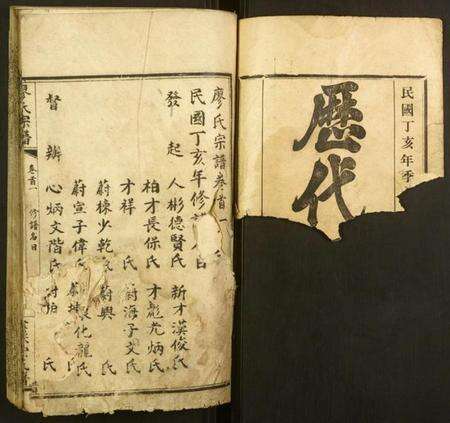 民國丁亥年季
歷代
廖氏宗譜卷首
民國丁亥年修
發起人彬德賢氏 新才漢俊氏
柏才長保氏 才彪光炳氏
才祥氏 蔚海子文氏
蔚棟少乾氏 蔚興氏
蔚宣子偉氏 化龍氏
督辦心炳文階氏 氏
氏宗譜
卷首
修譜名目